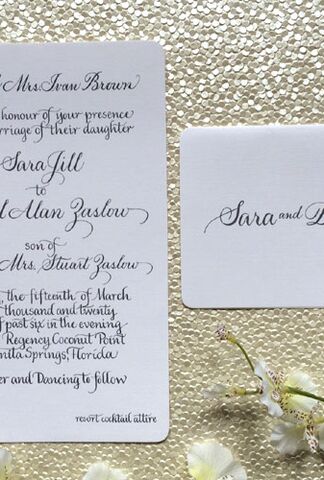 Mrs. Ivan Brown
honour of your presence
of their daughter
Sara Jill
to
Alan Zaslow
son of
Mrs. Stuart Zaslow
the fifteenth of March
thousand and twenty
past six in the evening
Regency Coconut Point
Springs, Florida
and Dancing to follow
resort cocktail attire
Sara and